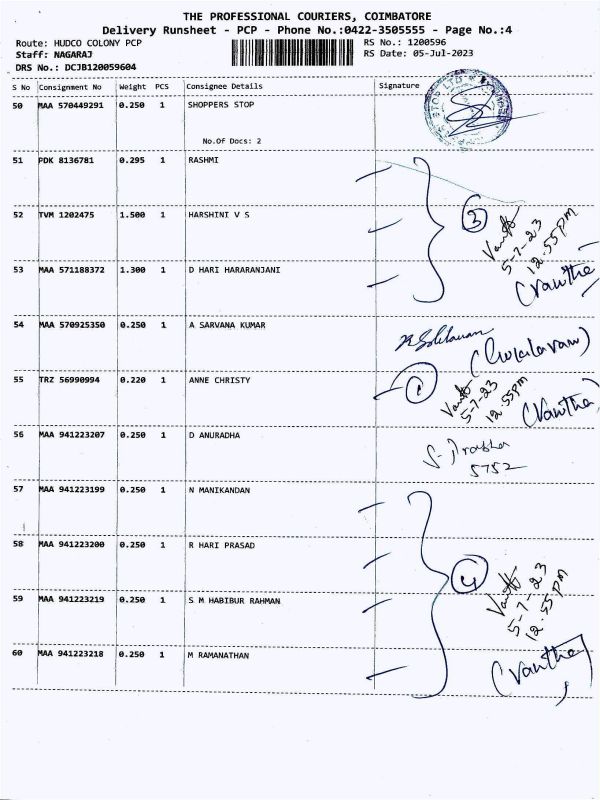 THE PROFESSIONAL COURIERS, COIMBATORE
Delivery Runsheet - PCP - Phone No.:0422-3505555 - Page No.:4
Route: HUDCO COLONY PCP RS No.: 1200596
Staff: NAGARAJ RS Date: 05-Jul-2023
DRS No.: DCJB120059604
S No Consignment No Weight PCS Consignee Details Signature
50 MAA 570449291 0.250 1 SHOPPERS STOP
No.Of Docs: 2
51 PDK 8136781 0.295 1 RASHMI
52 TVM 1202475 1.500 1 HARSHINI V S
3
5-7-23
12.55PM
53 MAA 571188372 1.300 1 D HARI HARARANJANI
(Vantha
54 MAA 570925350 0.250 1 A SARVANA KUMAR
55 TRZ 56990994 0.220 1 ANNE CHRISTY
1
5-7-23
12.55pm
(Vantha)
56 MAA 941223207 0.250 1 D ANURADHA
S. Prabha
5752
57 MAA 941223199 0.250 1 N MANIKANDAN
58 MAA 941223200 0.250 1 R HARI PRASAD
4
5-7-23
12.55pm
59 MAA 941223219 0.250 1 S M HABIBUR RAHMAN
60 MAA 941223218 0.250 1 M RAMANATHAN
(Vantha)